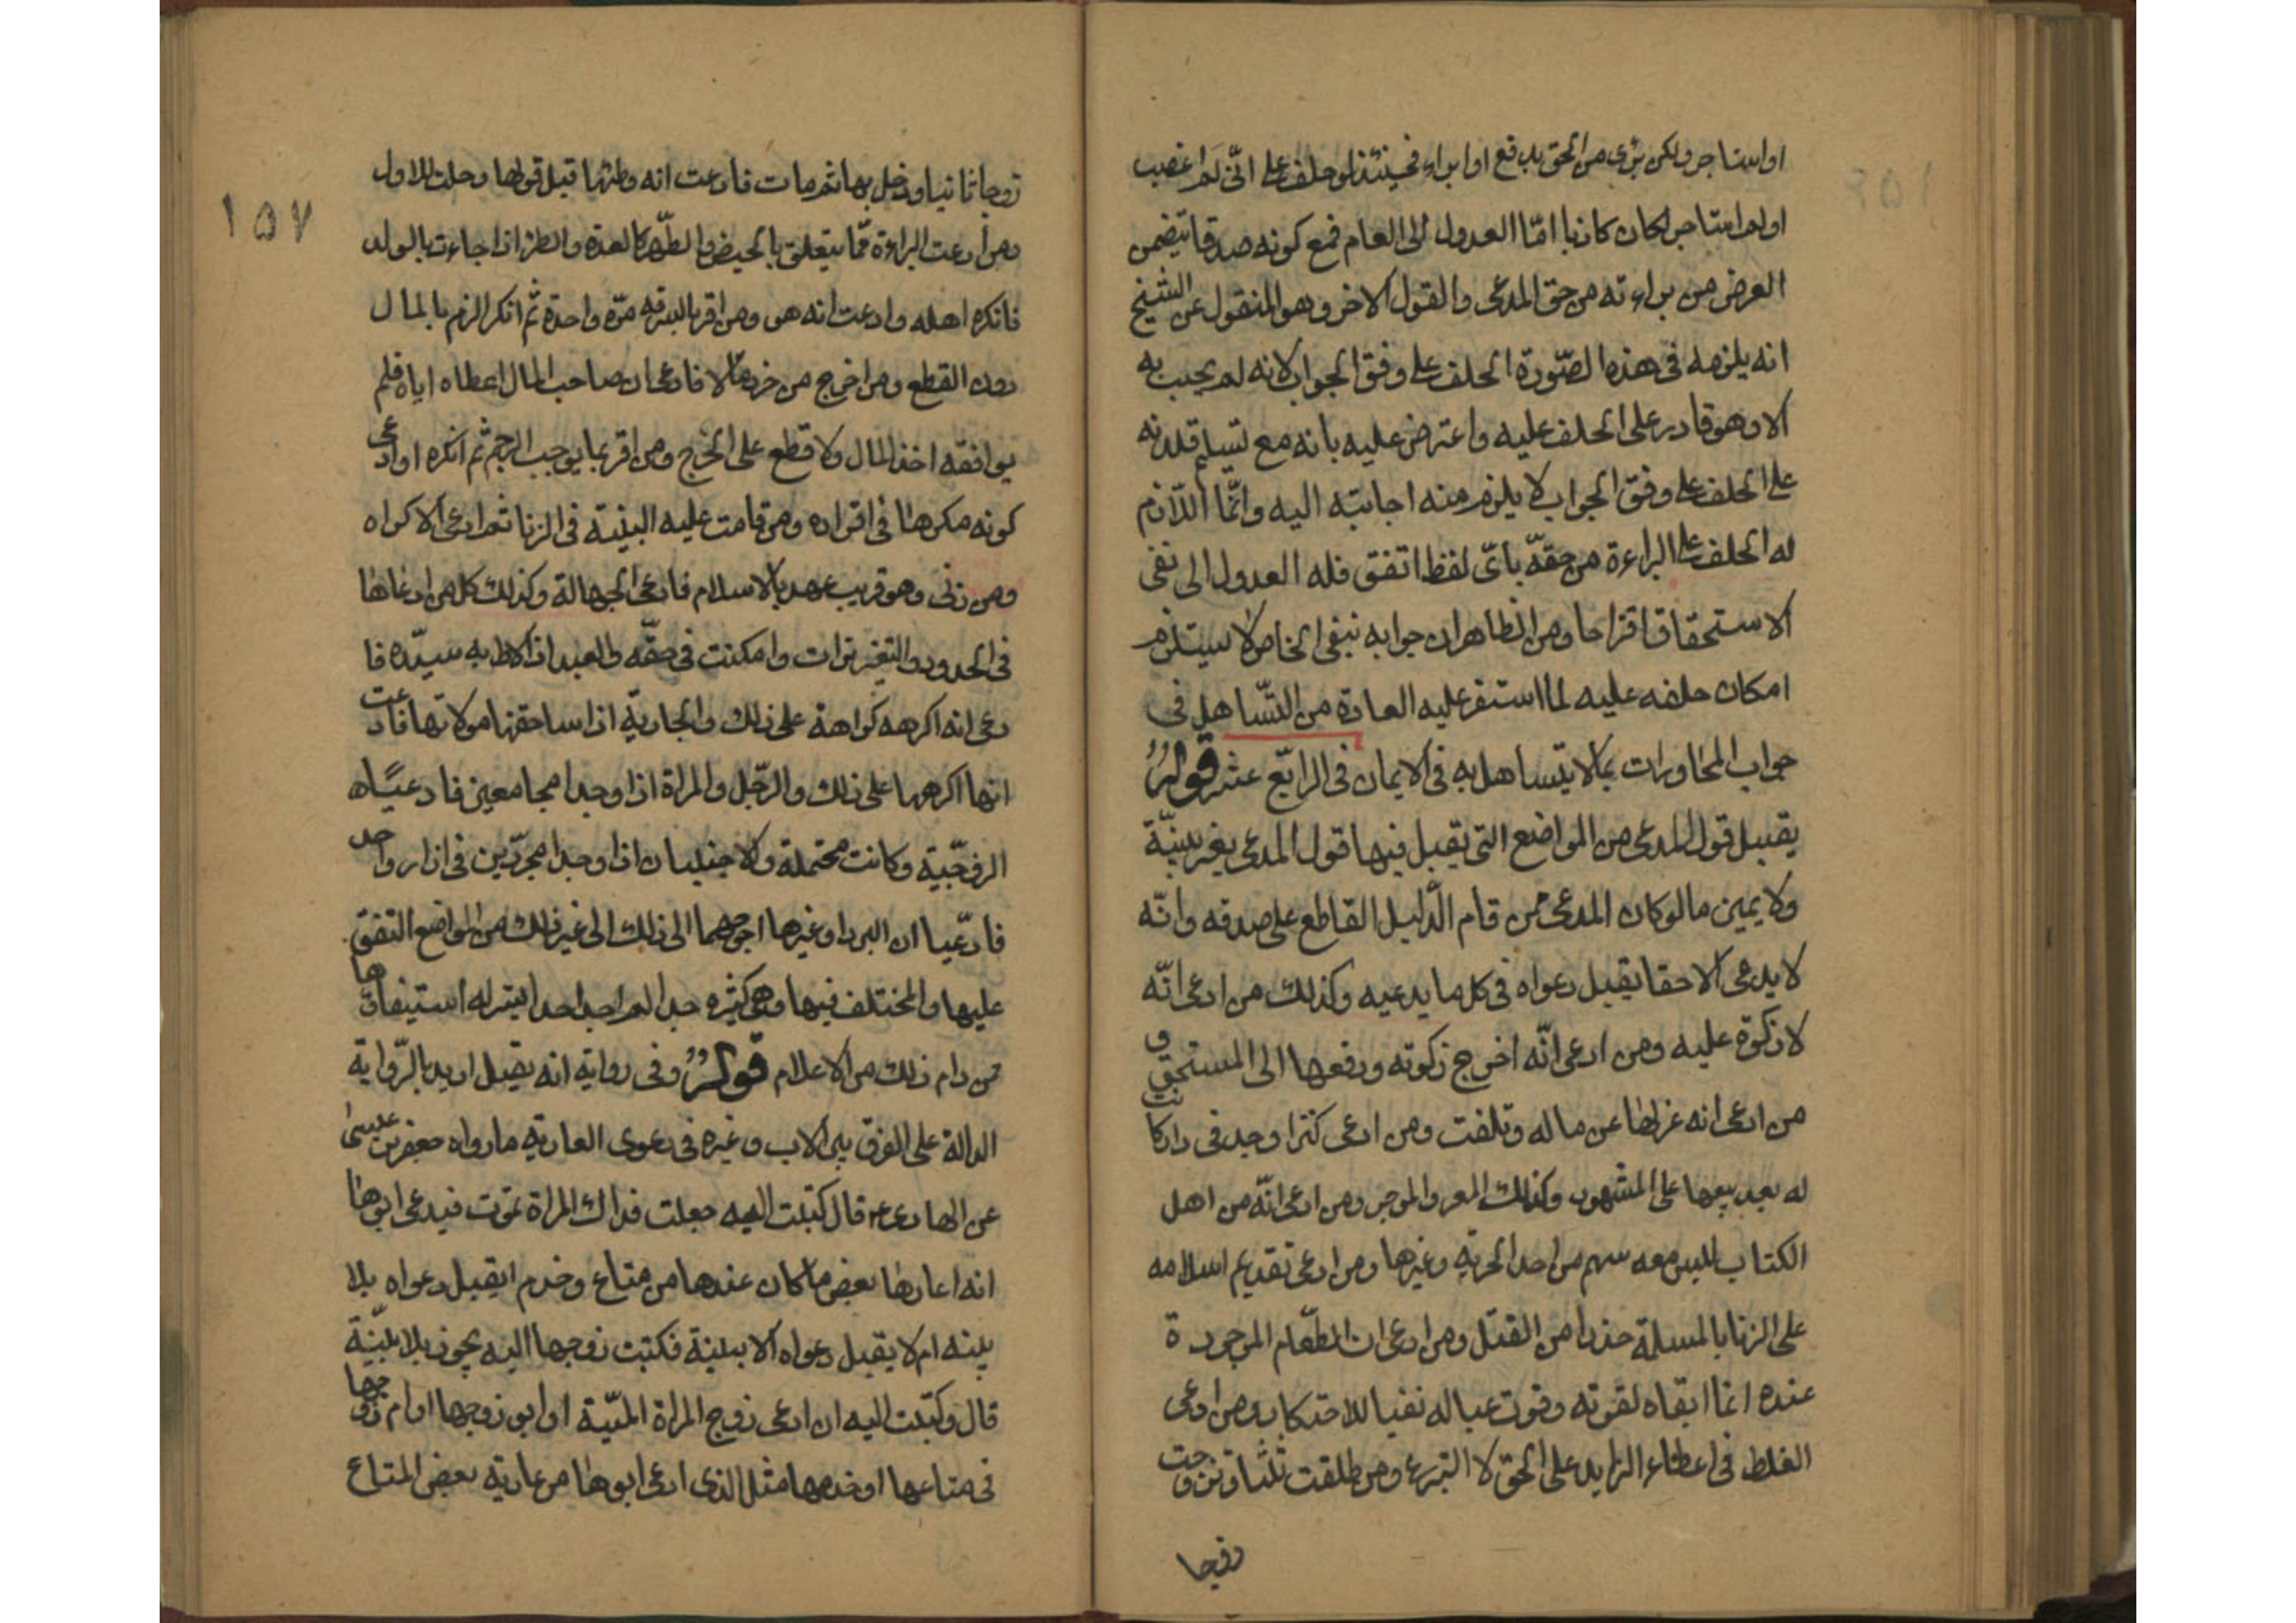 او استاجر ولكن برئ من الحق بدفع او ابراء فحينئذ لو حلف على انّى لم اغصب
اولم استاجر لكان كاذبا امّا العدول الى العام فمع كونه صدقا يتضمن
الغرض من براءته من حق المدعى والقول الاخر وهو المنقول عن الشيخ
انه يلزمه فى هذه الصّورة الحلف على وفق الجواب لانه لم يجب به
الا وهو قادر على الحلف عليه واعترض عليه بانه مع تسليم قدرته
على الحلف على وفق الجواب لا يلزم منه اجابته اليه وانّما اللّازم
له الحلف على البراءة من حقّه باىّ لفظ اتفق فله العدول الى نفى
الاستحقاق اقتراحا ومن الظاهر ان جوابه بنفى الخاص لا يستلزم
امكان حلفه عليه لما استقر عليه العادة من التّساهل فى
جواب المحاورات بما لا يتساهل به فى الايمان فى الرابع عشر قوله
يقبل قول المدعى من المواضع التى يقبل فيها قول المدعى بغير بينّة
ولا يمين ما لو كان المدعى من قام الدّليل القاطع على صدقه وانّه
لا يدعى الا حقا يقبل دعواه فى كل ما يدعيه وكذلك من ادعى انّه
لا زكوة عليه ومن ادعى انّه اخرج زكوته ودفعها الى المستحق و
من ادعى انه عزلها عن ماله وتلفت ومن ادعى كنزا وجد فى دار كانت
له بعد بيعها على المشهور وكذلك المعير والموجر ومن ادعى انّه من اهل
الكتاب ليس معه سهم من احد الحربية وغيرها ومن ادعى تقديم اسلامه
على الزنا بالمسلمة حذرا من القتل ومن ادعى ان الطّعام الموجودة
عنده انما ابقاه لقوته وقوت عياله نفيا للاحتكار ومن ادعى
الغلط فى اعطاء الزايد على الحق لا التبرع ومن طلقت ثلثا وتزوجت
زوجا
١٥٧
زوجا ثانيا ودخل بها ثم مات فادعت انه وطئها قبل قولها وحلت للاول
ومن ادعت البراءة ممّا يتعلق بالحيض والطّهر كالعدة والظئر اذا جاءت بالولد
فانكره اهله وادعت انه هو ومن اقر بالسرقه مرّه واحدة ثم انكر الزم بالمال
دون القطع ومن اخرج من حرز مالا فادعى ان صاحب المال اعطاه اياه فلم
يوافقه اخذ المال ولا قطع على المخرج ومن اقر بما يوجب الرجم ثم انكره او ادعى
كونه مكرها فى اقراره ومن قامت عليه البينة فى الزنا ثم ادعى الاكراه
ومن زنى وهو قريب عهد بالاسلام فادعى الجهالة وكذلك كل من ادعاها
فى الحدود والتغيرات وامكنت فى حقّه والعبد اذا لاط به سيّده فا
دعى انه اكرهه كراهة على ذلك والجارية اذا ساحقتها مولاتها فادعت
انها اكرهها على ذلك والرّجل والمراة اذا وجدا مجامعين فادعيا
الزوجّية وكانت محتملة والاجنبيان اذا وجدا مجرّدين فى ازار واحد
فادّعيا ان البرد او غيرها احوجهما الى ذلك الى غير ذلك من المواضع المتفق
عليها والمختلف فيها وهى كثيرة جدا لم اجد احدا يتيسر له استيفاؤها
ممن رام ذلك من الاعلام قوله وفى رواية انه يقبل اريد بالرّواية
الدالة على الفرق بين الاب وغيره فى دعوى العارية ما رواه جعفر بن عيسى
عن الهادى ع قال كتبت اليه جعلت فداك المراة تموت فيدعى ابوها
انه اعارها بعض ما كان عندها من متاع وخدم ايقبل دعواه بلا
بينه ام لا يقبل دعواه الا ببينة فكتبت زوجها اليه يجوز بلا بيّنة
قال وكتبت اليه ان ادعى زوج المراة الميّتة او ابو زوجها او ام زوجها
فى متاعها او خدمها مثل الذى ادعى ابوها من عارية بعض المتاع